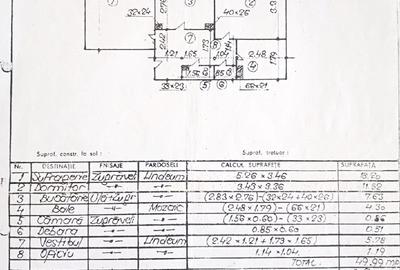 1
32×24
2.76
3
40×26
2.42
7
1.73
8
1.14
2.48
1.21
1.65
1.04
1.79
4
1.56
6
.85
33×23
5
6
66×21
Supraf. constr. la sol :
Supraf. trotuar :
Nr. DESTINAȚIE FNISAJE PARDOSELI CALCUL SUPRAFEȚE SUPRAFAȚA
1 Sufragerie Zugrăveli Linoleum 5.26 × 3.46 18.20
2 Dormitor -"- -"- 3.43 × 3.36 11.52
3 Bucătărie -"- (2.83×2.76)-(32×24+40×26) 7.63
4 Baie -"- Mozaic (2.48×1.79) - (66×21) 4.30
5 Cămară Zugrăveli -"- (1.56×0.60) - (33×23) 0.86
6 Debara -"- -"- 0.85 × 0.60 0.51
7 Vestibul -"- Linoleum (2.42×1.21+1.73×1.65) 5.78
8 Oficiu -"- -"- 1.14 × 1.04 1.19
TOTAL 49.99 mp